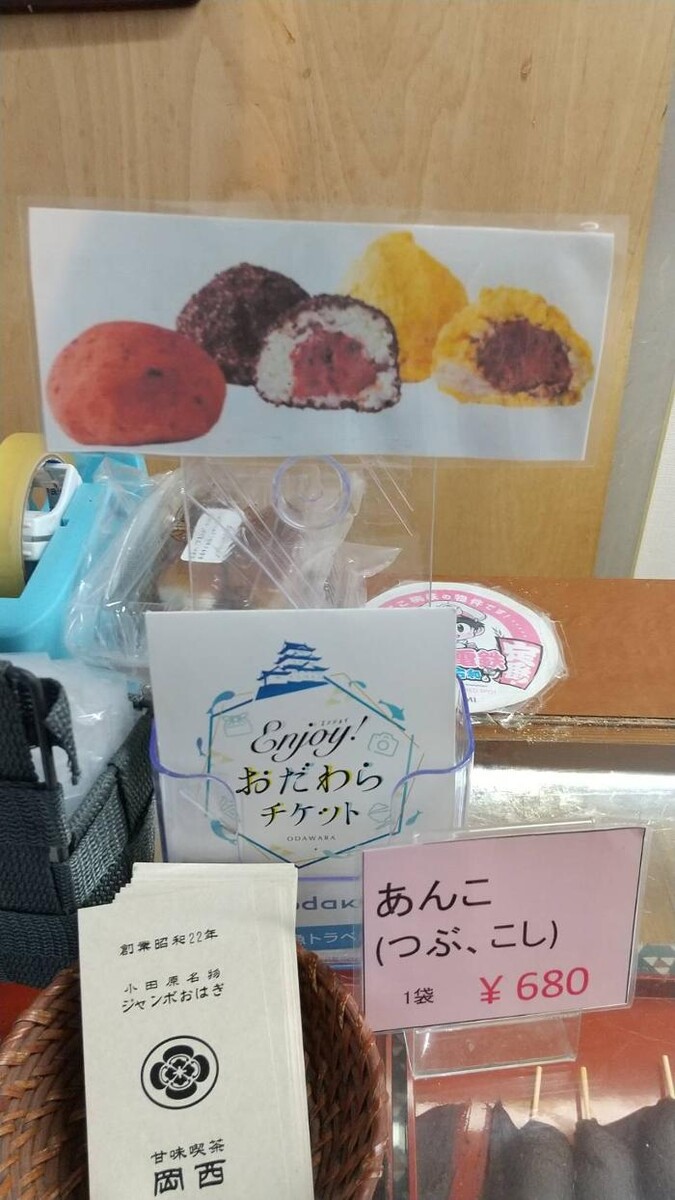 Enjoy!
おだわら
チケット
ODAWARA
あんこ
(つぶ、こし)
1袋 ¥680
創業昭和22年
小田原名物
ジャンボおはぎ
甘味喫茶
岡西
の物件です!
電鉄